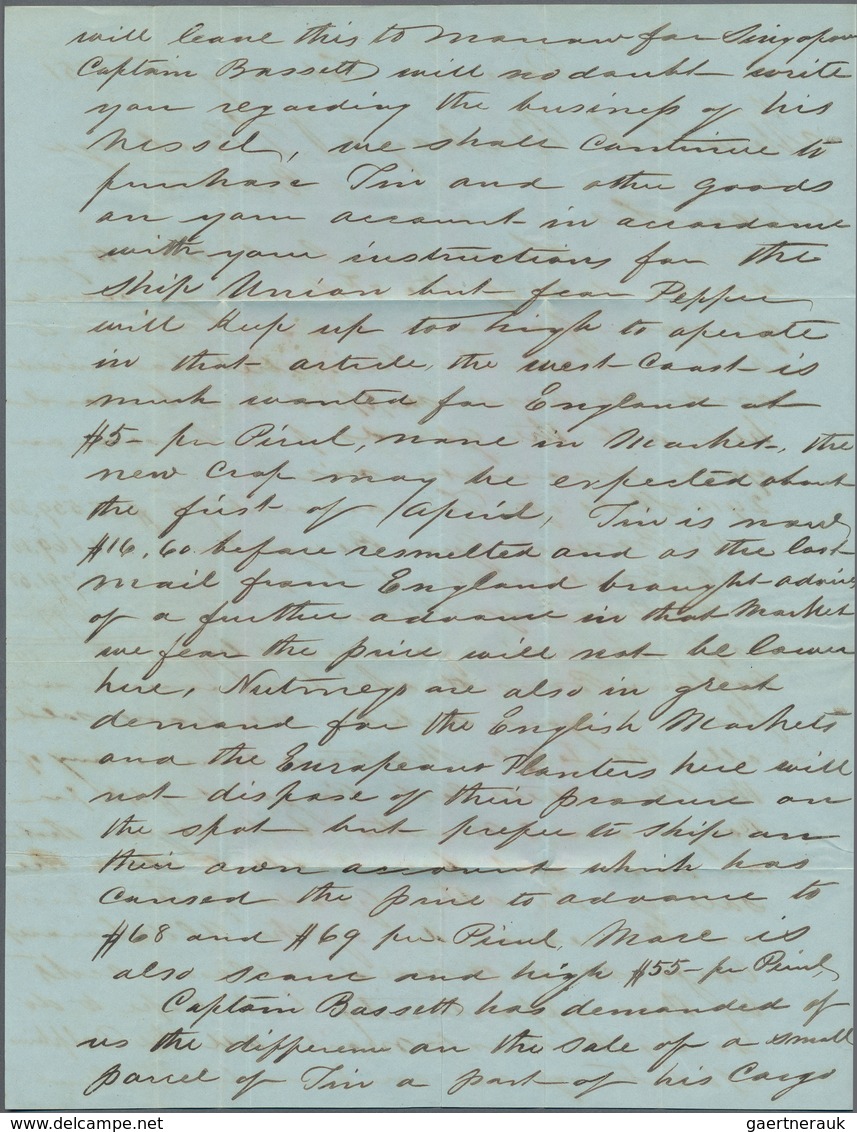 will leave this to Morrow for Singapore
Captain Bassett will no doubt write
you regarding the business of his
Vessel, we shall continue to
purchase Tin and other goods
on your account in accordance
with your instructions for the
Ship Union but fear Pepper
will Keep up too high to operate
in that article, the west Coast is
much wanted for England at
$5- per Picul, none in Market, the
new Crop may be expected about
the first of April, Tin is now
$16.60. before resmelted and as the last
Mail from England brought advice
of a further advance in that Market
we fear the price will not be lower
here, Nutmegs are also in great
demand for the English Markets
and the European Planters here will
not dispose of their produce on
the spot but prefer to Ship on
their own account which has
caused the price to advance to
$68 and $69 per Picul, Mace is
also scarce and high $55- per Picul,
Captain Bassett has demanded of
us the difference on the sale of a small
parcel of Tin a part of his Cargo
gaertnerauk